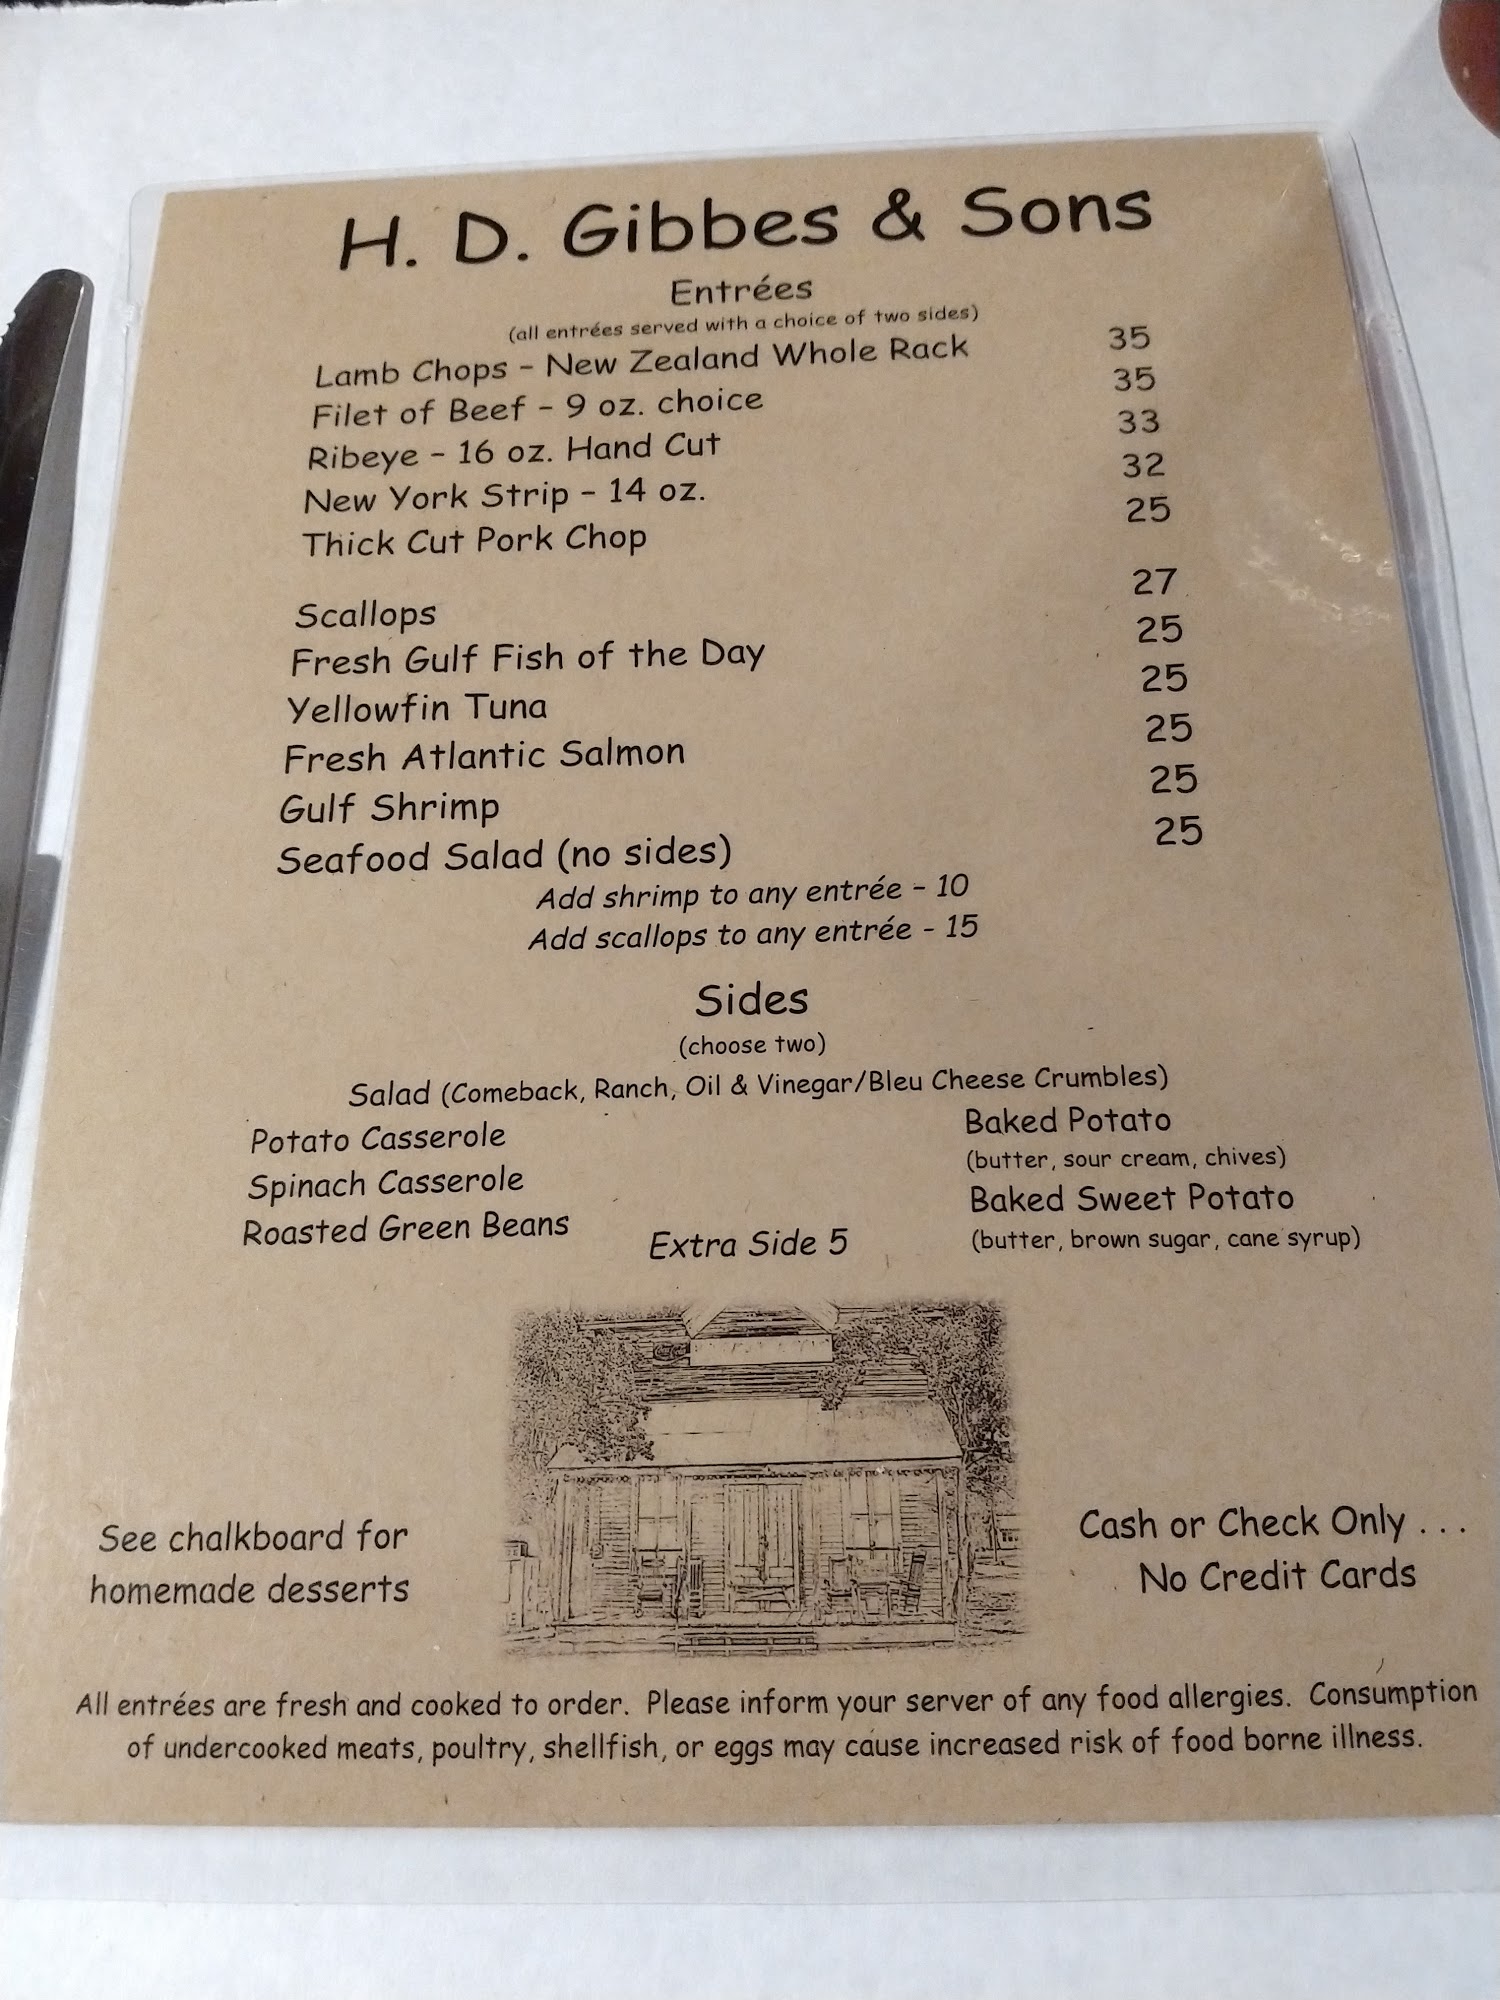 H. D. Gibbes & Sons
Entrées
(all entrées served with a choice of two sides)
Lamb Chops – New Zealand Whole Rack 35
Filet of Beef – 9 oz. choice 35
Ribeye – 16 oz. Hand Cut 33
New York Strip – 14 oz. 32
Thick Cut Pork Chop 25
Scallops 27
Fresh Gulf Fish of the Day 25
Yellowfin Tuna 25
Fresh Atlantic Salmon 25
Gulf Shrimp 25
Seafood Salad (no sides) 25
Add shrimp to any entrée – 10
Add scallops to any entrée - 15
Sides
(choose two)
Salad (Comeback, Ranch, Oil & Vinegar/Bleu Cheese Crumbles)
Potato Casserole Baked Potato
(butter, sour cream, chives)
Spinach Casserole Baked Sweet Potato
Roasted Green Beans (butter, brown sugar, cane syrup)
Extra Side 5
See chalkboard for
homemade desserts
Cash or Check Only . . .
No Credit Cards
All entrées are fresh and cooked to order. Please inform your server of any food allergies. Consumption
of undercooked meats, poultry, shellfish, or eggs may cause increased risk of food borne illness.